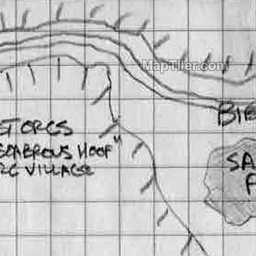 MapTiler.com
BIG
ET ORCS
SCABROUS HOOF"
RC VILLAGE
SA